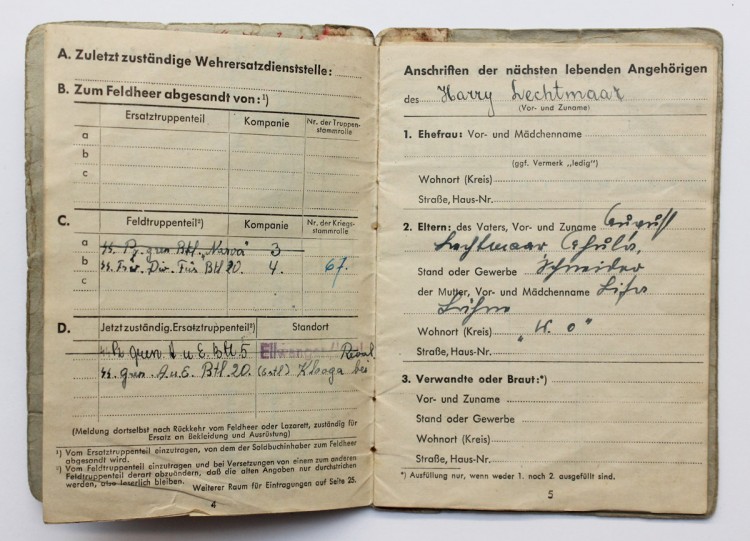 A. Zuletzt zuständige Wehrersatzdienststelle:
B. Zum Feldheer abgesandt von:¹)
Ersatztruppenteil Kompanie Nr. der Truppen-
stammrolle
a
b
c
C. Feldtruppenteil²) Kompanie Nr. der Kriegs-
stammrolle
a SS. Pz. gren. Btl. „Narwa" 3
b SS. Div. Füs Btl 20. 4. 67.
c
D. Jetzt zuständig. Ersatztruppenteil²) Standort
gren. A u E. Btl. 5 Ellwangen
Reval.
SS. gren. A. u. E. Btl. 20. (Estl.) Klooga bei
(Meldung dortselbst nach Rückkehr vom Feldheer oder Lazarett, zuständig für
Ersatz an Bekleidung und Ausrüstung)
¹) Vom Ersatztruppenteil einzutragen, von dem der Soldbuchinhaber zum Feldheer
abgesandt wird.
²) Vom Feldtruppenteil einzutragen und bei Versetzungen von einem zum anderen
Feldtruppenteil derart abzuändern, daß die alten Angaben nur durchstrichen
werden, also leserlich bleiben. Weiterer Raum für Eintragungen auf Seite 25.
4
Anschriften der nächsten lebenden Angehörigen
des Harry Lechtmaar
(Vor- und Zuname)
1. Ehefrau: Vor- und Mädchenname
(ggf. Vermerk „ledig")
Wohnort (Kreis)
Straße, Haus-Nr.
2. Eltern: des Vaters, Vor- und Zuname August
Lechtmaar
Stand oder Gewerbe Schneider
der Mutter, Vor- und Mädchenname
Wohnort (Kreis) „W. o"
Straße, Haus-Nr.
3. Verwandte oder Braut:*)
Vor- und Zuname
Stand oder Gewerbe
Wohnort (Kreis)
Straße, Haus-Nr.
*) Ausfüllung nur, wenn weder 1. noch 2. ausgefüllt sind.
5